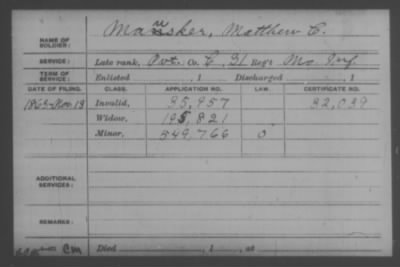 NAME OF SOLDIER: Mansker, Matthew C.
SERVICE: Late rank, Pvt. Co. C, 31 Reg't Mo. Inf.
TERM OF SERVICE: Enlisted , 1 Discharged , 1
DATE OF FILING. CLASS. APPLICATION NO. LAW. CERTIFICATE NO.
1863-Nov. 13 Invalid, 35,957 32,039
Widow, 195,821
Minor, 549,766 0
ADDITIONAL SERVICES:
REMARKS:
Cm Died , 1 , at